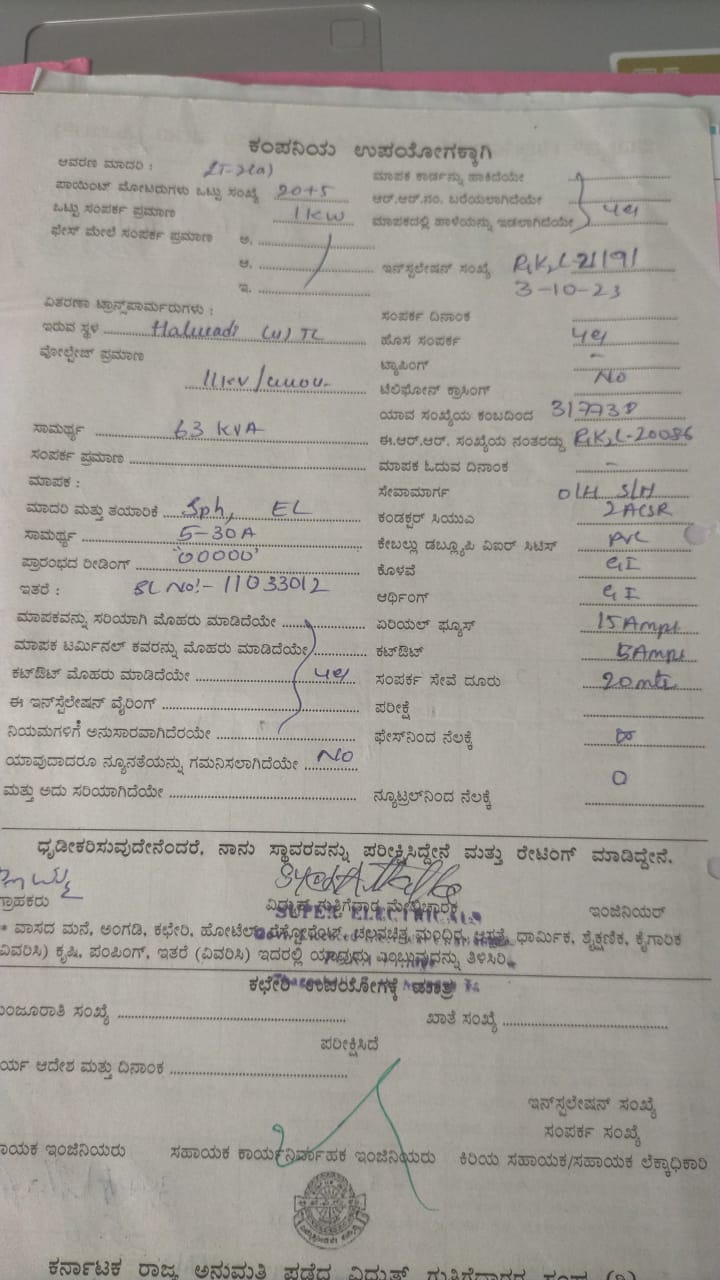 ಕಂಪನಿಯ ಉಪಯೋಗಕ್ಕಾಗಿ
ಆವರಣ ಮಾದರಿ : LT-2(a)
ಪಾಯಿಂಟ್ ಮೋಟರುಗಳು ಒಟ್ಟು ಸಂಖ್ಯೆ 20+5
ಒಟ್ಟು ಸಂಪರ್ಕ ಪ್ರಮಾಣ 1 KW
ಫೇಸ್ ಮೇಲೆ ಸಂಪರ್ಕ ಪ್ರಮಾಣ ಅ.
ಆ.
ಇ.
ವಿತರಣಾ ಟ್ರಾನ್ಸ್‌ಪಾರ್ಮರುಗಳು :
ಇರುವ ಸ್ಥಳ
ವೋಲ್ಟೇಜ್ ಪ್ರಮಾಣ
11KV/
ಸಾಮರ್ಥ್ಯ 63 KVA
ಸಂಪರ್ಕ ಪ್ರಮಾಣ
ಮಾಪಕ :
ಮಾದರಿ ಮತ್ತು ತಯಾರಿಕೆ EL
ಸಾಮರ್ಥ್ಯ 5-30A
ಪ್ರಾರಂಭದ ರೀಡಿಂಗ್ '00000'
ಇತರೆ : SL No:- 11033012
ಮಾಪಕವನ್ನು ಸರಿಯಾಗಿ ಮೊಹರು ಮಾಡಿದೆಯೇ
ಮಾಪಕ ಟರ್ಮಿನಲ್ ಕವರನ್ನು ಮೊಹರು ಮಾಡಿದೆಯೇ
ಕಟ್‌ಔಟ್ ಮೊಹರು ಮಾಡಿದೆಯೇ yes
ಈ ಇನ್‌ಸ್ಟೆಲೇಷನ್ ವೈರಿಂಗ್
ನಿಯಮಗಳಿಗೆ ಅನುಸಾರವಾಗಿದೆರಯೇ
ಯಾವುದಾದರೂ ನ್ಯೂನತೆಯನ್ನು ಗಮನಿಸಲಾಗಿದೆಯೇ NO
ಮತ್ತು ಅದು ಸರಿಯಾಗಿದೆಯೇ
ಮಾಪಕ ಕಾರ್ಡನ್ನು ಹಾಕಿದೆಯೇ
ಆರ್.ಆರ್.ನಂ. ಬರೆಯಲಾಗಿದೆಯೇ
ಮಾಪಕದಲ್ಲಿ ಹಾಳೆಯನ್ನು ಇಡಲಾಗಿದೆಯೇ yes
ಇನ್‌ಸ್ಟಲೇಷನ್ ಸಂಖ್ಯೆ
3-10-23
ಸಂಪರ್ಕ ದಿನಾಂಕ
ಹೊಸ ಸಂಪರ್ಕ yes
ಟ್ಯಾಪಿಂಗ್ -
ಟೆಲಿಫೋನ್ ಕ್ರಾಸಿಂಗ್ NO
ಯಾವ ಸಂಖ್ಯೆಯ ಕಂಬದಿಂದ
ಈ.ಆರ್.ಆರ್. ಸಂಖ್ಯೆಯ ನಂತರದ್ದು
ಮಾಪಕ ಓದುವ ದಿನಾಂಕ -
ಸೇವಾಮಾರ್ಗ O/H S/H
ಕಂಡಕ್ಟರ್ ಸಿಯುವಿ 2 ACSR
ಕೇಬಲ್ಲು ಡಬ್ಲ್ಯೂಪಿ ವಿಐರ್ ಸಿಟಿಸ್ PVC
ಕೊಳವೆ GI
ಆರ್ಥಿಂಗ್ GI
ಏರಿಯಲ್ ಫ್ಯೂಸ್ 15 Amps
ಕಟ್‌ಔಟ್ 5 Amps
ಸಂಪರ್ಕ ಸೇವೆ ದೂರು 20 mts
ಪರೀಕ್ಷೆ
ಫೇಸ್‌ನಿಂದ ನೆಲಕ್ಕೆ ∞
ನ್ಯೂಟ್ರಲ್‌ನಿಂದ ನೆಲಕ್ಕೆ 0
ಧೃಡೀಕರಿಸುವುದೇನೆಂದರೆ, ನಾನು ಸ್ಥಾವರವನ್ನು ಪರೀಕ್ಷಿಸಿದ್ದೇನೆ ಮತ್ತು ರೇಟಿಂಗ್ ಮಾಡಿದ್ದೇನೆ.
ಗ್ರಾಹಕರು ವಿದ್ಯುತ್ ಗುತ್ತಿಗೆದಾರ ಮೇಲ್ವಿಚಾರಕ ಇಂಜಿನಿಯರ್
SUPER ELECTRICALS
* ವಾಸದ ಮನೆ, ಅಂಗಡಿ, ಕಛೇರಿ, ಹೋಟೆಲ್, ಚಲನಚಿತ್ರ ಮಂದಿರ, ಆಸ್ಪತ್ರೆ, ಧಾರ್ಮಿಕ, ಶೈಕ್ಷಣಿಕ, ಕೈಗಾರಿಕ
(ವಿವರಿಸಿ) ಕೃಷಿ, ಪಂಪಿಂಗ್, ಇತರೆ (ವಿವರಿಸಿ) ಇದರಲ್ಲಿ ಯಾವುದು ಎಂಬುವುದನ್ನು ತಿಳಿಸಿರಿ.
ಕಛೇರಿ ಉಪಯೋಗಕ್ಕೆ ಮಾತ್ರ
ಮಂಜೂರಾತಿ ಸಂಖ್ಯೆ ಖಾತೆ ಸಂಖ್ಯೆ
ಪರೀಕ್ಷಿಸಿದೆ
ಆದೇಶ ಮತ್ತು ದಿನಾಂಕ
ಇನ್‌ಸ್ಟಲೇಷನ್ ಸಂಖ್ಯೆ
ಸಂಪರ್ಕ ಸಂಖ್ಯೆ
ಇಂಜಿನಿಯರು ಸಹಾಯಕ ಕಾರ್ಯನಿರ್ವಾಹಕ ಇಂಜಿನಿಯರು ಕಿರಿಯ ಸಹಾಯಕ/ಸಹಾಯಕ ಲೆಕ್ಕಾಧಿಕಾರಿ
ಕರ್ನಾಟಕ ರಾಜ್ಯ ಅನುಮತಿ ಪಡೆದ ವಿದ್ಯುತ್ ಗುತ್ತಿಗೆದಾರರ ಸಂಘ